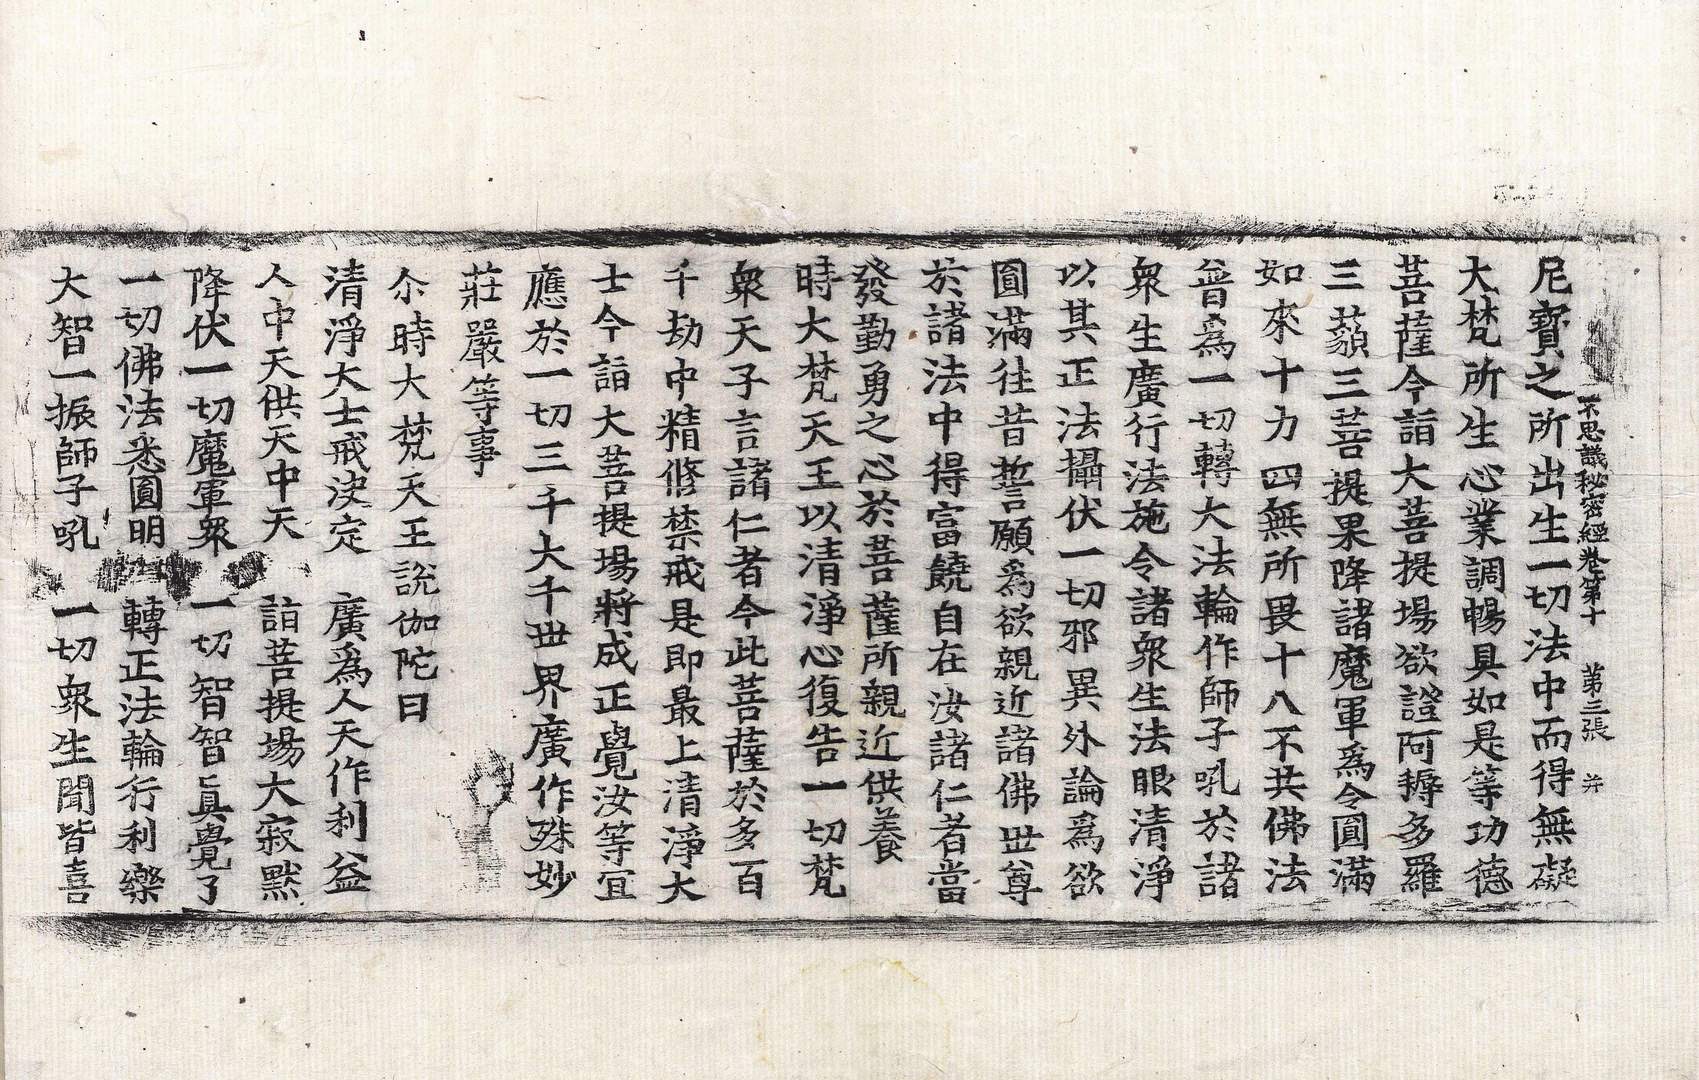 不思議秘密經卷第十　第三張　并
尼寶之所出生一切法中而得無礙
大梵所生心業調暢具如是等功德
菩薩今詣大菩提場欲證阿耨多羅
三藐三菩提果降諸魔軍爲令圓滿
如來十力四無所畏十八不共佛法
普爲一切轉大法輪作師子吼於諸
衆生廣行法施令諸衆生法眼清淨
以其正法攝伏一切邪異外論爲欲
圓滿往昔誓願爲欲親近諸佛世尊
於諸法中得富饒自在汝諸仁者當
發勤勇之心於菩薩所親近供養
時大梵天王以清淨心復告一切梵
衆天子言諸仁者今此菩薩於多百
千劫中精修禁戒是即最上清淨大
士今詣大菩提場將成正覺汝等宜
應於一切三千大千世界廣作殊妙
莊嚴等事
尒時大梵天王說伽陀曰
清淨大士戒決定　廣爲人天作利益
人中天供天中天　詣菩提場大寂默
降伏一切魔軍衆　一切智智眞覺了
一切佛法悉圓明　轉正法輪行利樂
大智一振師子吼　一切衆生聞皆喜